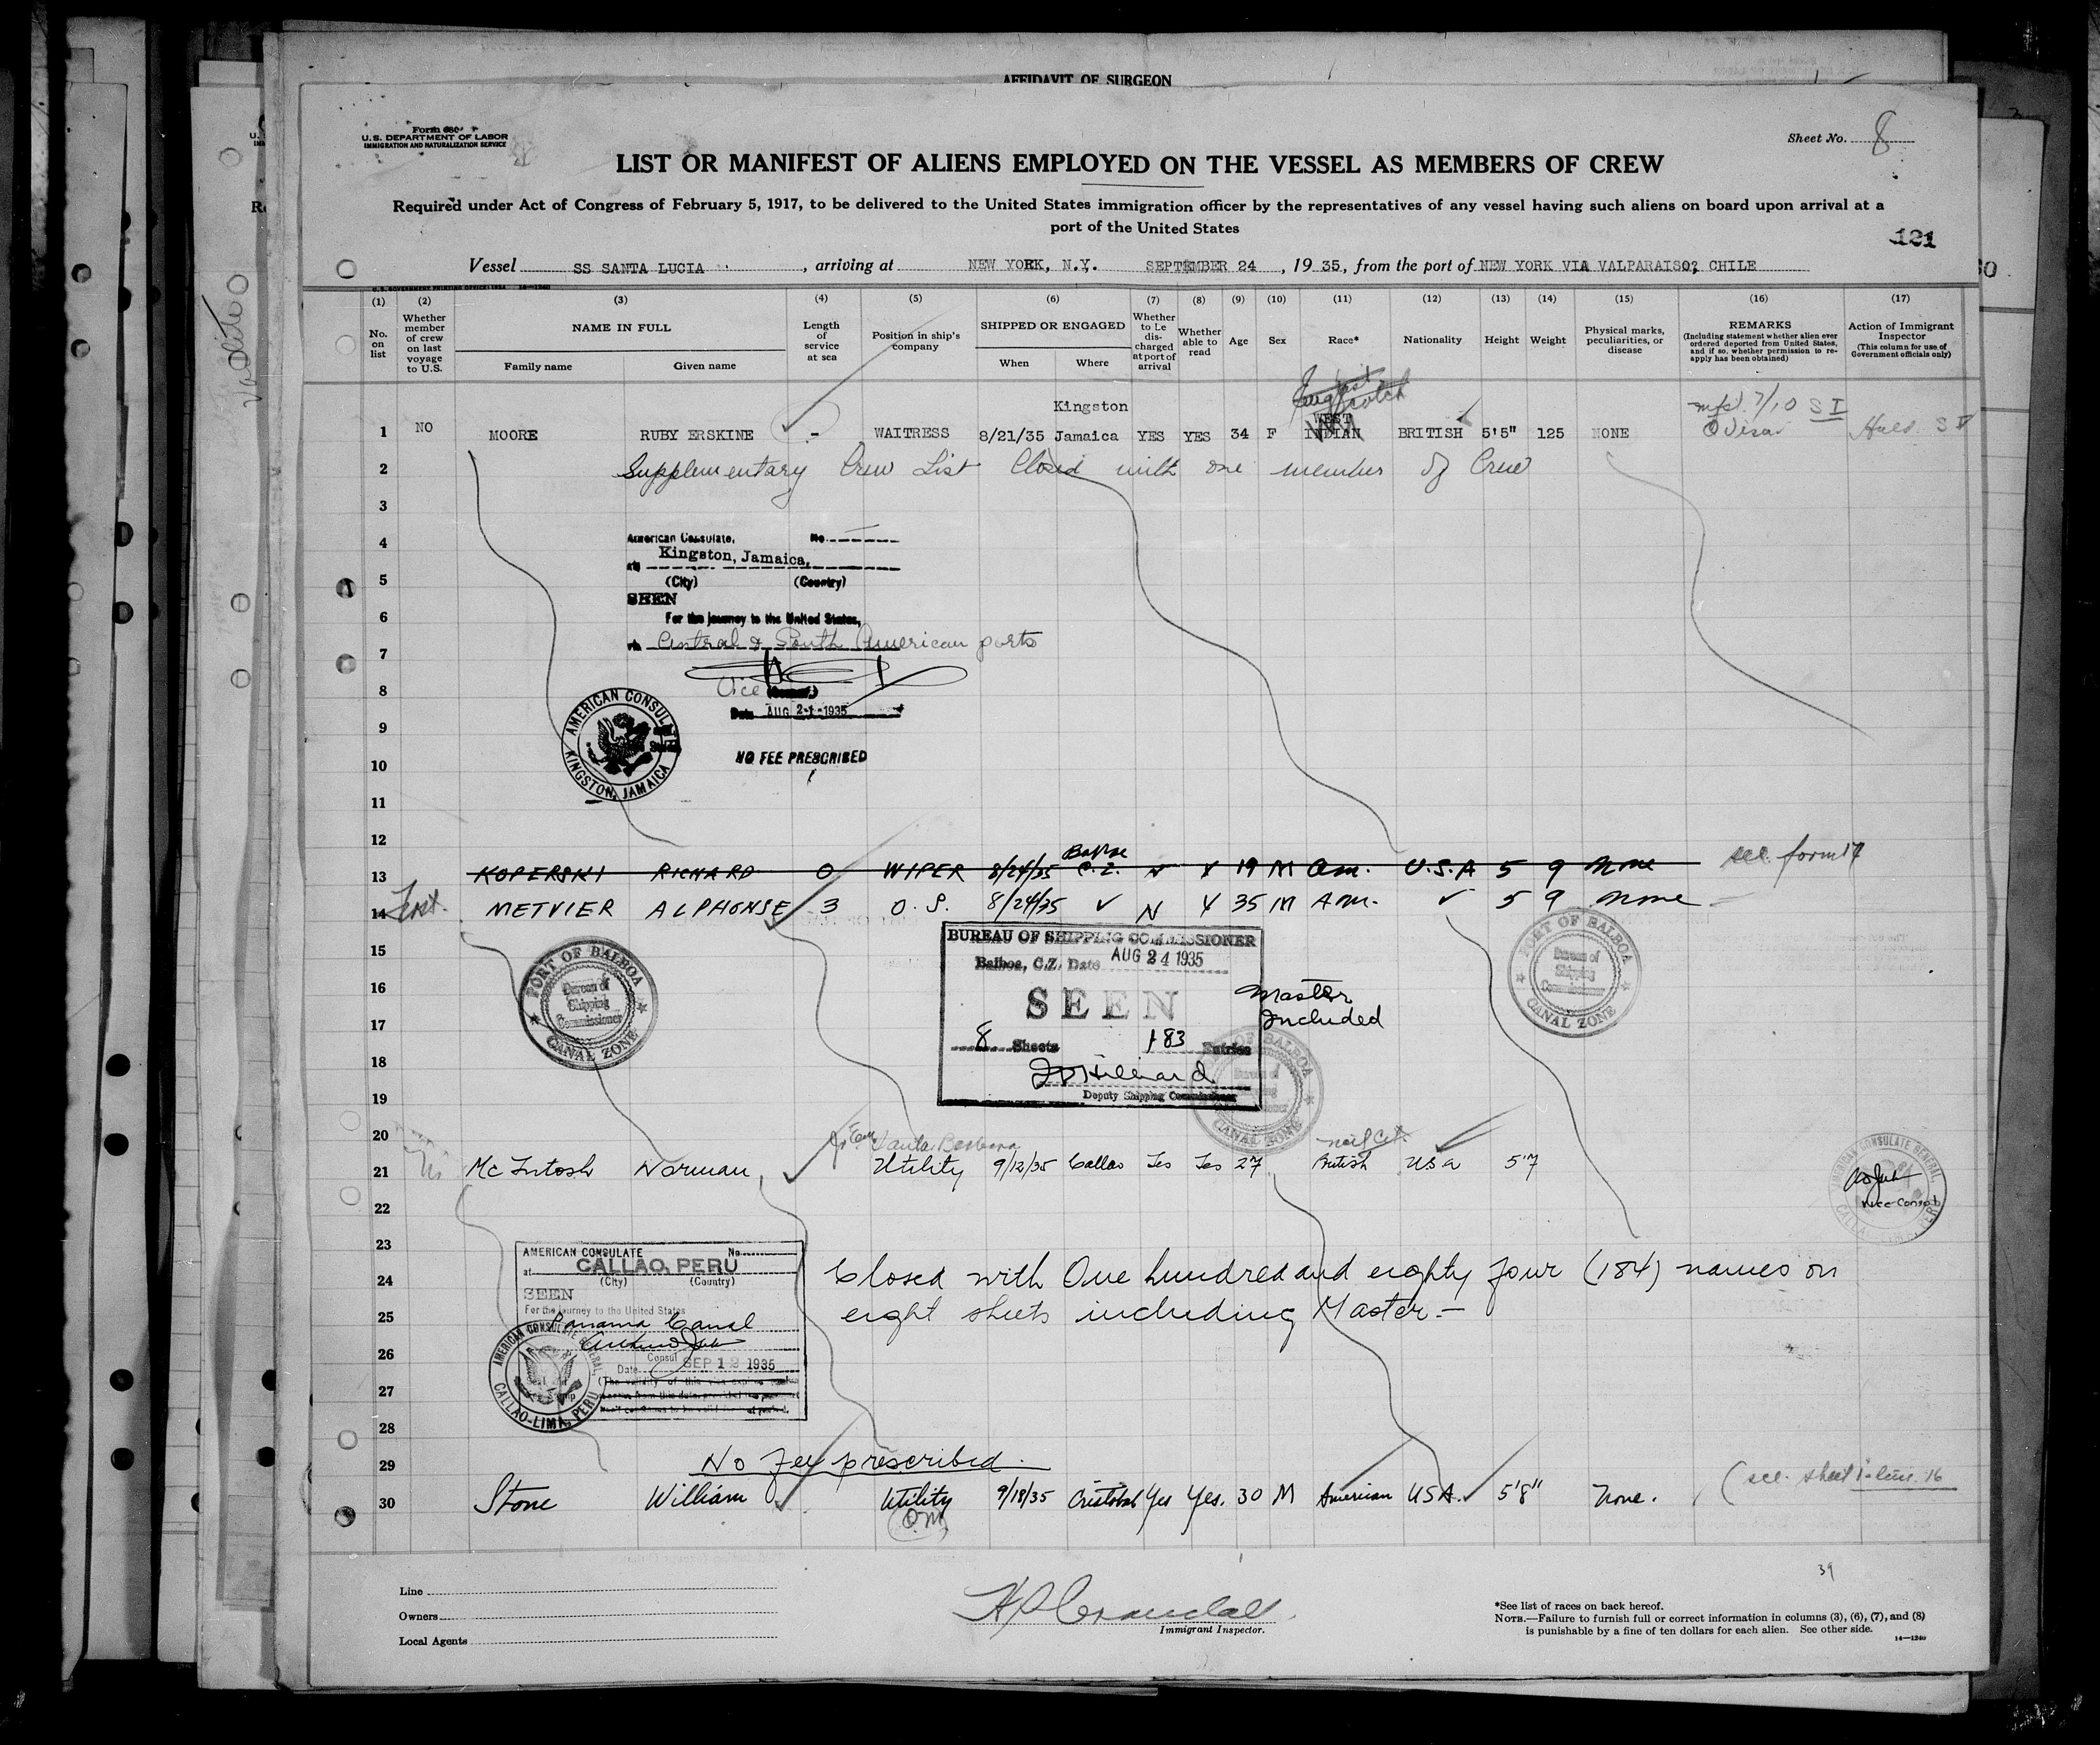 AFFIDAVIT OF SURGEON
Form 680
U.S. DEPARTMENT OF LABOR
IMMIGRATION AND NATURALIZATION SERVICE
Sheet No. 8
LIST OR MANIFEST OF ALIENS EMPLOYED ON THE VESSEL AS MEMBERS OF CREW
Required under Act of Congress of February 5, 1917, to be delivered to the United States immigration officer by the representatives of any vessel having such aliens on board upon arrival at a
port of the United States
121
Vessel SS SANTA LUCIA, arriving at NEW YORK, N.Y. SEPTEMBER 24, 1935, from the port of NEW YORK VIA VALPARAISO, CHILE
(1) (2) (3) (4) (5) (6) (7) (8) (9) (10) (11) (12) (13) (14) (15) (16) (17)
No. on list
Whether member of crew on last voyage to U.S.
NAME IN FULL
Family name Given name
Length of service at sea
Position in ship's company
SHIPPED OR ENGAGED
When Where
Whether to be discharged at port of arrival
Whether able to read
Age
Sex
Race*
Nationality
Height
Weight
Physical marks, peculiarities, or disease
REMARKS
(Including statement whether alien ever ordered deported from United States, and if so, whether permission to reapply has been obtained)
Action of Immigrant Inspector
(This column for use of Government officials only)
Scotch
1 NO MOORE RUBY ERSKINE - WAITRESS 8/21/35 Kingston Jamaica YES YES 34 F WEST INDIAN BRITISH 5'5" 125 NONE
2 Supplementary Crew List Closed with one member of Crew
3
4
American Consulate, No.
at Kingston, Jamaica,
5
(City) (Country)
SEEN
6
For the journey to the United States,
via Central & South American ports
7
8
Vice (Consul)
Date AUG 21 1935
AMERICAN CONSULATE
KINGSTON, JAMAICA
9
NO FEE PRESCRIBED
10
11
12
13 KOPERSKI RICHARD 0 WIPER 8/24/35 Balboa C.Z. N Y 19 M Am. U.S.A 5 9 None see form 17
14 METVIER ALPHONSE 3 O.S. 8/24/35 N Y 35 M Am. 5 9 None
15
PORT OF BALBOA
Bureau of Shipping Commissioner
CANAL ZONE
BUREAU OF SHIPPING COMMISSIONER
Balboa, C.Z. Date AUG 24 1935
16
SEEN
Master Included
17
8 Sheets 183 Entries
18
Deputy Shipping Commissioner
PORT OF BALBOA
Bureau of Shipping Commissioner
CANAL ZONE
19
20
Santa Barbara
21 Mc Intosh Norman Utility 9/12/35 Callao Yes Yes 27 British USA 5'7
AMERICAN CONSULATE GENERAL
Vice Consul
22
23
AMERICAN CONSULATE No.
at CALLAO, PERU
(City) (Country)
24 Closed with One hundred and eighty four (184) names on
SEEN
For the journey to the United States
25 eight sheets including Master.-
Panama Canal
26
Consul
Date SEP 12 1935
AMERICAN CONSULATE GENERAL
CALLAO-LIMA, PERU
27
28
29 No Fee prescribed.
30 Stone William Utility 9/18/35 Cristobal Yes Yes. 30 M American USA. 5'8" None. (see sheet 1 line 16
39
Line
Owners
Local Agents
Immigrant Inspector.
*See list of races on back hereof.
NOTE.—Failure to furnish full or correct information in columns (3), (6), (7), and (8)
is punishable by a fine of ten dollars for each alien. See other side.
14—1240